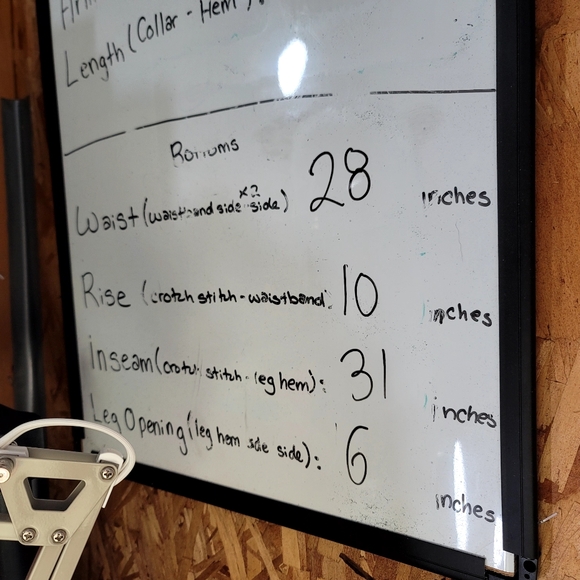 Length (Collar - Hem):
Bottoms
Waist (waistband side-side) x2 28 inches
Rise (crotch stitch - waistband: 10 inches
Inseam (crotch stitch - leg hem): 31 inches
Leg Opening (leg hem side side): 6 inches